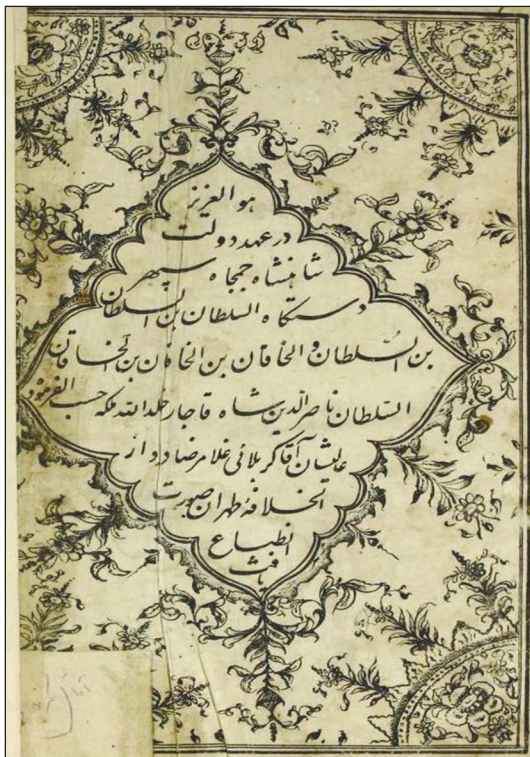 هو العزیز
در عهد دولت
شاهنشاه جمجاه سپهر
دستگاه السلطان بن السلطان
بن السلطان و الخاقان بن الخاقان بن الخاقان
السلطان ناصر الدین شاه قاجار خلد الله ملکه حسب الفرموده
عالیشان آقا کربلائی غلامرضا در دار
الخلافه طهران صورت
انطباع
یافت